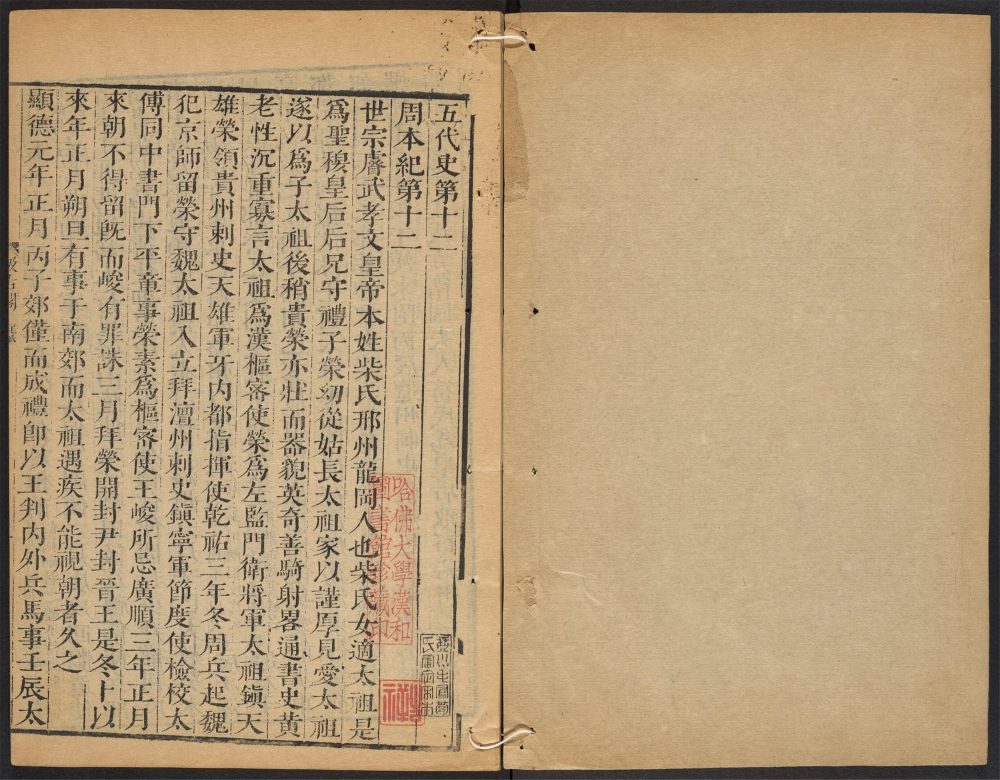 五代史第十二
周本紀第十二
世宗睿武孝文皇帝本姓柴氏邢州龍岡人也柴氏女適太祖是
爲聖穆皇后后兄守禮子榮幼從姑長太祖家以謹厚見愛太祖
遂以爲子太祖後稍貴榮亦壯而器貌英奇善騎射畧通書史黃
老性沉重寡言太祖爲漢樞密使榮爲左監門衛將軍太祖鎮天
雄榮領貴州刺史天雄軍牙内都指揮使乾祐三年冬周兵起魏
犯京師留榮守魏太祖入立拜澶州刺史鎮寧軍節度使檢校太
傅同中書門下平章事榮素爲樞密使王峻所忌廣順三年正月
來朝不得留旣而峻有罪誅三月拜榮開封尹封晉王是冬卜以
來年正月朔旦有事于南郊而太祖遇疾不能視朝者久之
顯德元年正月丙子郊僅而成禮卽以王判内外兵馬事壬辰太
哈佛大學漢和
圖書館珍藏印